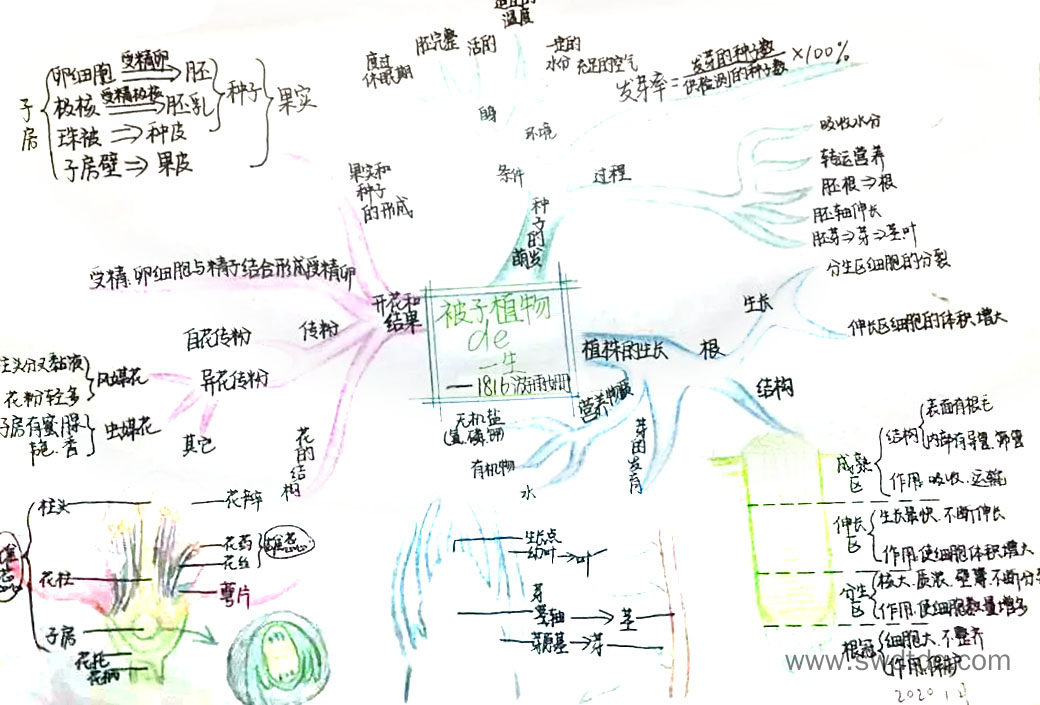 温度
胚完整
活的
一定的
水分
充足的空气
度过
休眠期
环境
条件
过程
种子的
萌发
发芽率=发芽的种子数/供检测的种子数×100%
吸收水分
转运营养
胚根⇒根
胚轴伸长
胚芽⇒芽⇒茎叶
子房
卵细胞 受精卵 ⇒ 胚
极核 受精极核 ⇒ 胚乳
种子
珠被 ⇒ 种皮
子房壁 ⇒ 果皮
果实
果实和
种子
的形成
受精:卵细胞与精子结合形成受精卵
开花和
结果
自花传粉
传粉
异花传粉
柱头分叉黏液
花粉轻多
风媒花
子房有蜜腺
色.香
虫媒花
其它
花的结构
被子植物
de
一生
植株的生长
根
生长
分生区细胞的分裂
伸长区细胞的体积增大
结构
营养物质
无机盐
(氮.磷.钾)
有机物
水
芽的发育
成熟区
结构
表面有根毛
内部有导管.筛管
作用:吸收.运输
伸长区
生长最快.不断伸长
作用:使细胞体积增大
分生区
核大.质浓.壁薄.不断分裂
作用:使细胞数量增多
根冠
细胞大.不整齐
作用:保护
柱头
花瓣
花药
花丝
雄蕊
花柱
萼片
子房
花托
花柄
生长点
幼叶→叶
芽
芽轴→茎
芽原基→芽
www.swdtdq.com